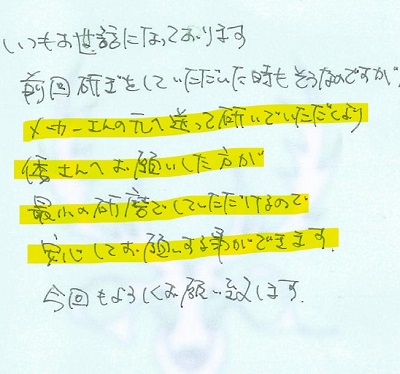 いつもお世話になっております
前回研ぎをしていただいた時もそうなのですが、
メーカーさんの元へ送って研いでいただくより
倭さんへお願いした方が
最小の研磨でしていただけるので
安心してお願いする事ができます.
今回もよろしくお願い致します.